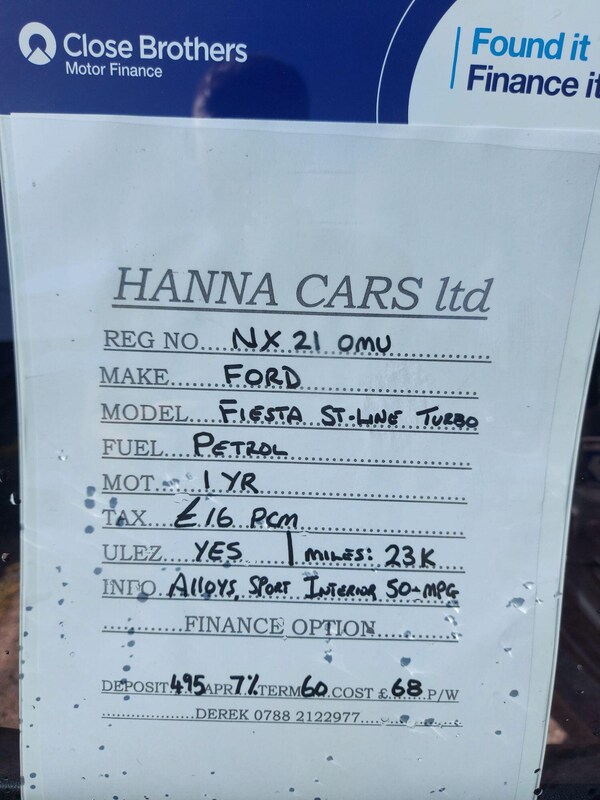 Close Brothers
Motor Finance
Found it
Finance it
HANNA CARS ltd
REG NO....NX 21 OMU
MAKE......FORD
MODEL....FIESTA ST-LINE TURBO
FUEL....PETROL
MOT......1 YR
TAX...£16 PCM
ULEZ....YES | MILES: 23K
INFO..ALLOYS, SPORT INTERIOR 50-MPG
FINANCE OPTION
DEPOSIT 495 APR 7% TERM 60 COST £ 68 P/W
DEREK 0788 2122977